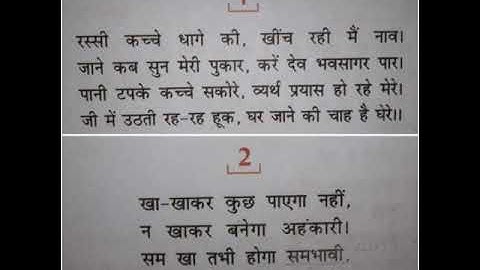 1
रस्सी कच्चे धागे की, खींच रही मैं नाव।
जाने कब सुन मेरी पुकार, करें देव भवसागर पार।
पानी टपके कच्चे सकोरे, व्यर्थ प्रयास हो रहे मेरे।
जी में उठती रह-रह हूक, घर जाने की चाह है घेरे।।
2
खा-खाकर कुछ पाएगा नहीं,
न खाकर बनेगा अहंकारी।
सम खा तभी होगा समभावी,